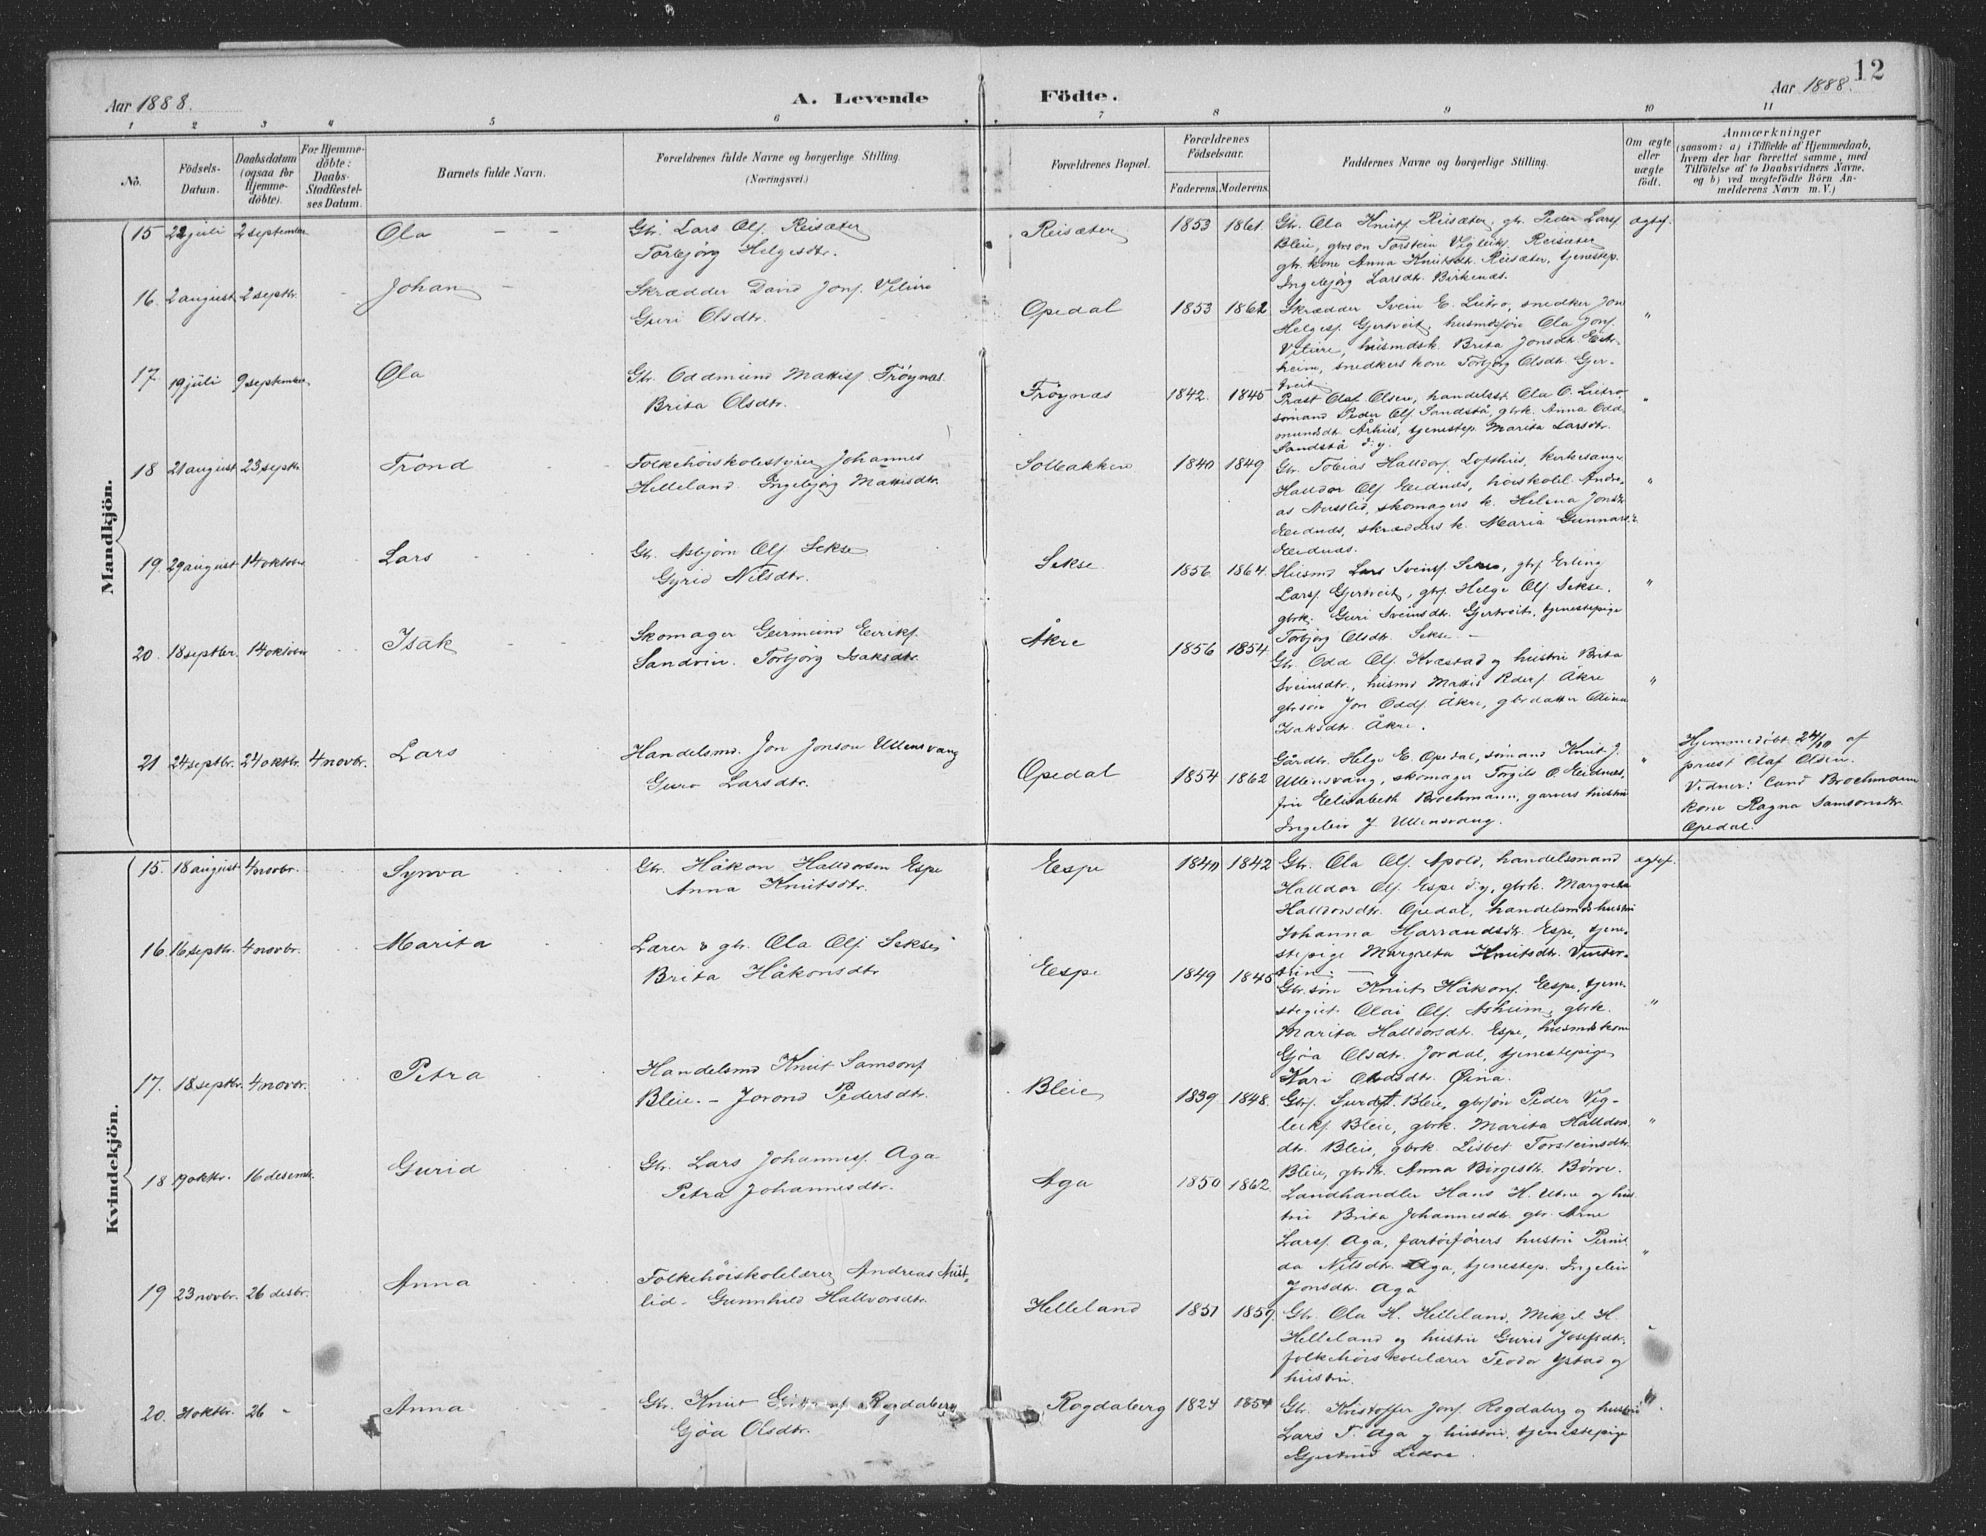 12
Aar 1888.
A. Levende
Födte.
Aar 1888.
1 2 3 4 5 6 7 8 9 10 11
No.
Födsels-
Datum.
Daabsdatum
(ogsaa for
Hjemme-
döbte).
For Hjemme-
döbte:
Daabs-
Stadfæstel-
ses Datum.
Barnets fulde Navn.
Forældrenes fulde Navne og borgerlige Stilling.
(Næringsvei.)
Forældrenes Bopæl.
Forældrenes
Födselsaar.
Faderens. Moderens.
Faddernes Navne og borgerlige Stilling.
Om ægte
eller
uægte
födt.
Anmærkninger
(saasom: a) i Tilfælde af Hjemmedaab,
hvem der har forrettet samme, med
Tilföielse af to Daabsvidners Navne,
og b) ved uægtefödte Börn An-
melderens Navn m. V.)
Mandkjön.
15 22 juli 2 september Ola
Gbr. Lars Ols. Reisæter
Torbjørg Helgesdtr.
Reisæter 1853 1861.
Gbr. Ola Knuts. Reisæter, gbr. Peder Lars.
Bleie, gbrsøn Torstein Vigleiks. Reisæter
gbr. kone Anna Knutsdtr. Reisæter, tjenestep.
Ingebjørg Larsdtr. Birkenes.
ægtef.
16. 2 august 2 septbr. Johan
Skrædder David Jons. Velure
Guri Olsdtr.
Opedal 1853 1862
Skrædder Svein E. Lutro, snedker Jon
Helges. Gjertveit, husmdsføre Ola Jons.
Velure, husmdsk. Brita Jonsdtr. Eit-
heim, snedkers kone Torbjørg Olsdtr. Gjer-
tveit
"
17 19 juli 9 september Ola
Gbr. Oddmund Mattiss. Frøynæs
Brita Olsdtr.
Frøynæs 1842. 1845
Præst Olaf Olsen, handelsst. Ola O. Lutro,
sømand Peder Ols. Sandstå, gbrk. Anna Odd-
mundsdt. Århus, tjenestep. Marita Larsdtr.
Sandstå d.y.
"
18 21 august 23 septbr. Trond
Folkehøiskolestyrer Johannes
Helleland. Ingebjørg Mattisdtr.
Solbakken 1840 1849
Gbr. Tobias Halldors. Lofthus, kirkesanger
Halldor Ols. Eidnæs, høiskolel. Andre-
as Austlid, skomagers k. Helena Jonsdtr.
Eidnæs, skrædders k. Maria Gunnarsd.
Eidnæs.
"
19. 29 august 14 oktober Lars
Gbr. Asbjørn Ols. Sekse
Gyrid Nilsdtr.
Sekse 1856 1864
Husmd Lars Sveins. Sekse, gbs. Erling
Lars. Gjertveit, gbs. Helge Ols. Sekse.
gbrk. Guri Sveinsdtr. Gjertveit, tjenestepige
Torbjørg Olsdtr. Sekse. –
"
20. 18 septbr. 14 oktober Isak
Skomager Geirmund Eiriks.
Sandvin. Torbjørg Isaksdtr.
Åkre 1856 1854
Gbr. Odd Ols. Kvæstad og hustru Brita
Sveinsdtr., husmd Mattis Peders. Åkre
gbrsøn Jon Odds. Åkre, gbrdatter
Isaksdtr. Åkre.
"
21 24 septbr. 24 oktbr. 4 novbr. Lars
Handelsmd. Jon Jonson Ullensvang
Guro Larsdtr.
Opedal 1854 1862
Gårdbr. Helge E. Opedal, sømand Knut J.
Ullensvang, skomager Torgils O. Eidnæs,
fru Elisabeth Brochmann, garvers hustru
Ingeleiv J. Ullensvang.
"
Hjemmedøbt 24/10 af
præst Olaf Olsen.
Vidner: Cand Brochmann
kone Ragna Samsonsdtr.
Opedal.
Kvindekjön.
15. 18 august 4 novbr. Synva
Gbr. Håkon Halldorsen Espe
Anna Knutsdtr.
Espe 1840 1842
Gbr. Ola Ols. Apold, handelsmand
Halldor Ols. Espe d.y., gbrk. Margreta
Halldorsdtr. Opedal, handelsmdshustru
Johanna Hjarrandsdtr. Espe, tjene-
stepige Margreta Knutsdtr. Vinter-
tun. –
ægtef.
16. 16 septbr. 4 novbr. Marita
Lærer & gbr. Ola Ols. Sekse
Brita Håkonsdtr
Espe 1849 1845
Gbr.søn Knut Håkons. Espe, tjene-
stegut Olai Ols. Åsheim, gbrk.
Marita Halldorsdtr. Espe, husmdskone
Gjøa Olsdtr. Jordal, tjenestepige
Kari Oddsdtr. Øina.
"
17. 18 septbr. 4 novbr. Petra
Handelsmd Knut Samsons.
Bleie. – Jorond Pedersdtr.
Bleie 1839 1848.
Gbr. Bleie, gbrsøn Peder Vig-
leiks. Bleie, gbrk. Marita Halldors-
dtr. Bleie, gbrk. Lisbet Torsteinsdtr.
Bleie, gbrdtr. Anna Birgesdtr. Børve.
"
18. 19 oktbr. 16 desembr. Gurid
Gbr. Lars Johanness. Aga
Petra Johannesdtr.
Aga 1850 1862
Landhandler Hans H. Utne og hus-
tru Brita Johannesdtr. gbr. Arne
Lars. Aga, fartøiførers hustru Pernil-
da Nilsdtr. Aga, tjenestep. Ingeleiv
Jonsdtr. Aga
"
19 23 novbr. 26 desbr. Anna
Folkehøiskolelærer Andreas Aust-
lid. Gunnhild Hallvorsdtr.
Helleland 1851 1859.
Gbr. Ola H. Helleland, Mikjel H.
Helleland og hustru Gurid Josefsdtr.
folkehøiskolelærer Teodor Ystad og
hustru.
"
20. 31 oktbr. 26 " Anna
Gbr. Knut Rogdaberg
Gjøa Olsdtr.
Rogdaberg 1824 1854
Gbr. Kristoffer Jons. Rogdaberg og hustru
Lars T. Aga og hustru, tjenestepige
Gjertrud Lekve.
"